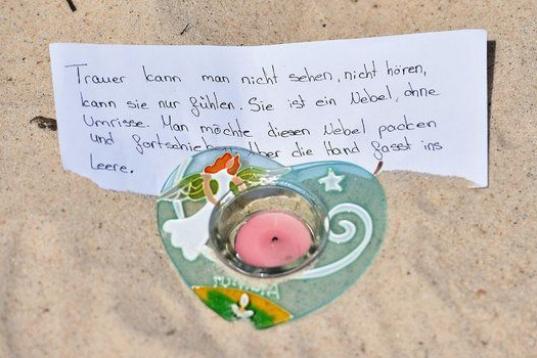 Trauer kann man nicht sehen, nicht hören,
kann sie nur fühlen. Sie ist ein Nebel, ohne
Umrisse. Man möchte diesen Nebel packen
und fortschieben, Aber die Hand fasst ins
Leere.